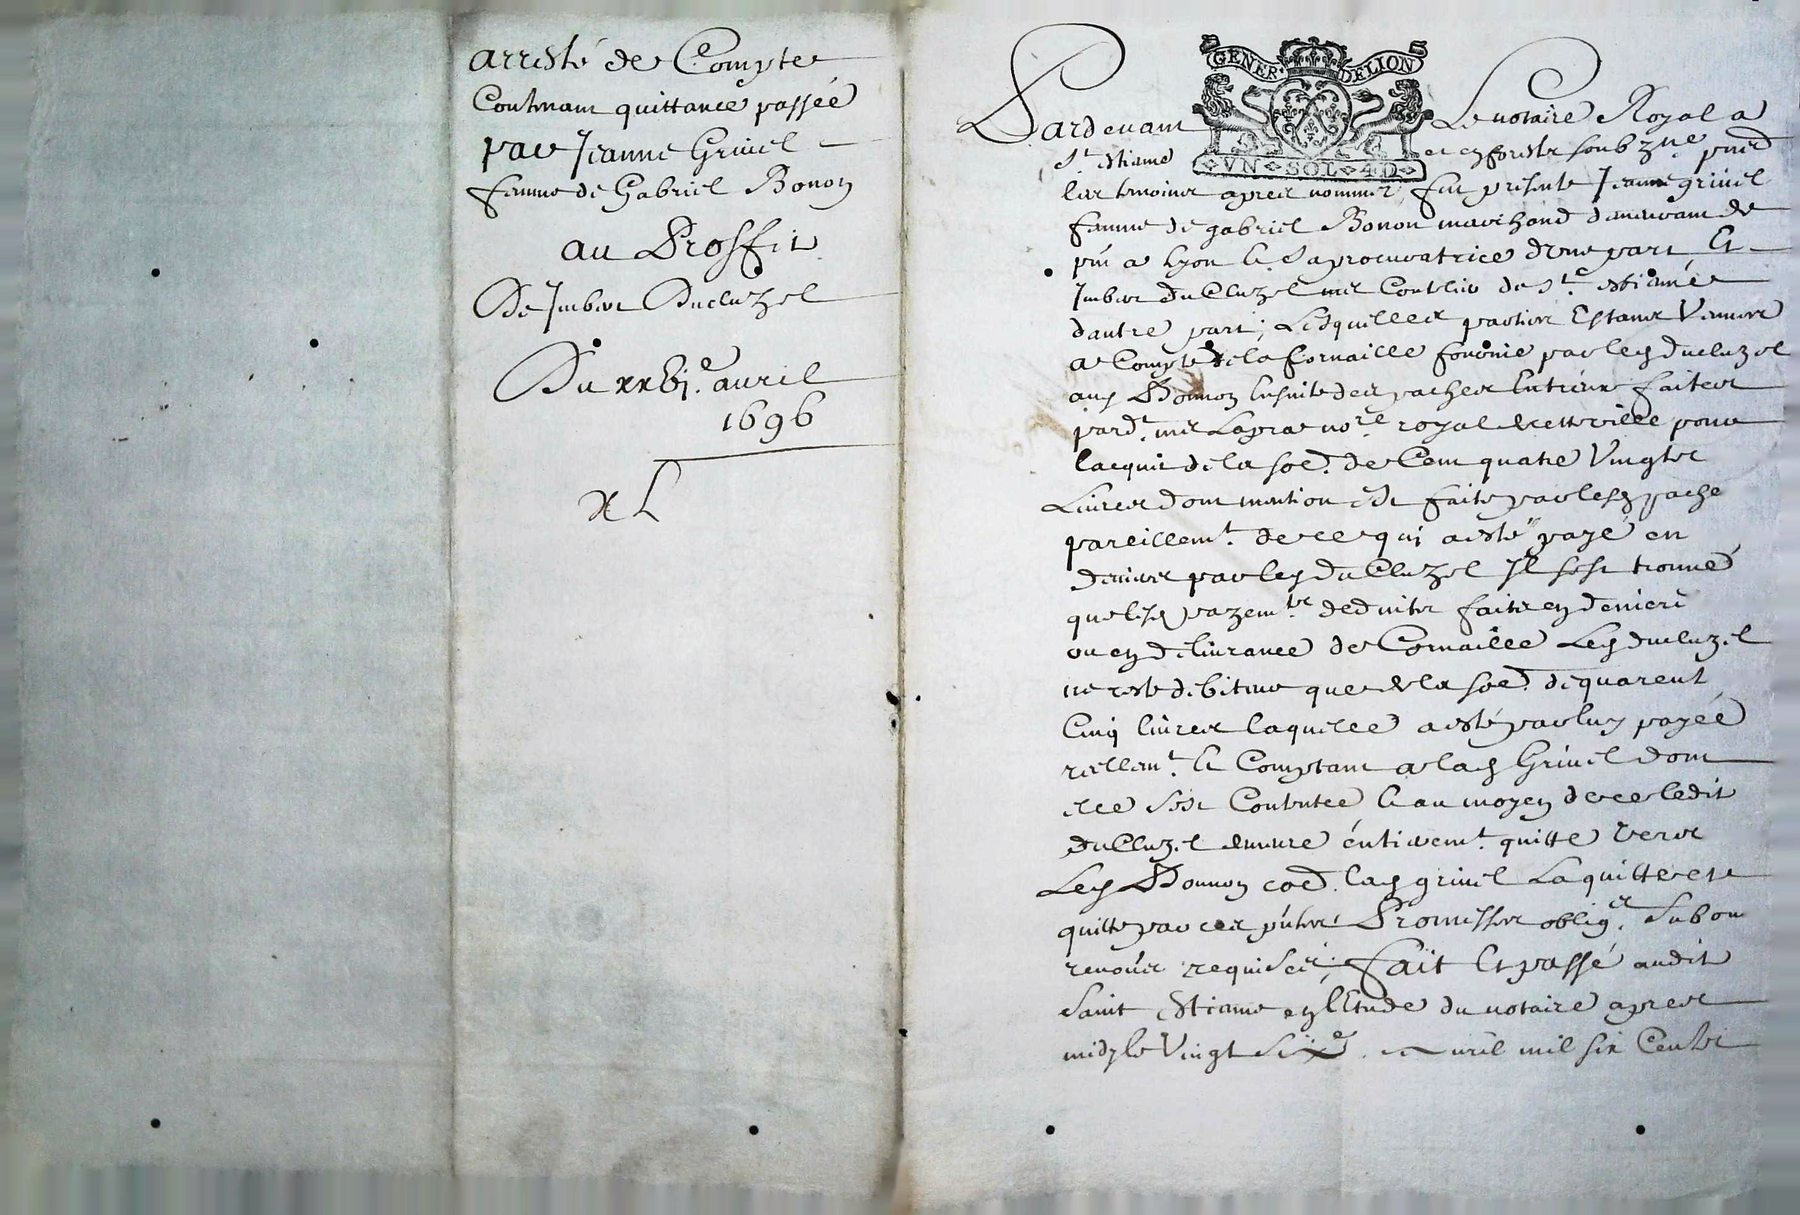 arresté de Compte
Contenant quittance passée
par Jeanne Grivel
femme de Gabriel Bonon
au Proffit
De Jmber Ducluzel
Du xxbj.e avril
1696
GENER DELION
VN SOL 4D
Pardevant Le notaire Royal a
St. Estiene et en forestz soubzne pnt
les temoins apres nommes, fut presente Jeanne grivel
femme de gabriel Bonon marchand demeurant de
pnt a Lyon & sa procuratrice d'une part Et
Jmber DuCluzel me Coutelier de St. estienne
dautre part; Lesquelles parties Estans Venues
a Compte de la Cornaille fournie par led ducluzel
aud Bonnon ensuite des paches entreux faites
pard.t me Lapra no.re royal de cette ville pour
lacquit de la so.e de Cent quatre Vingts
Livres dont mention est faite par lesd pache
pareillem.t de ce qui a esté payé en
deniers par led DuCluzel Jl sest trouvé
que lesd payem.ts deduits faits en deniers
ou en delivrance de Cornaille Led ducluzel
ne reste debiteur que de la so.e de quarent
Cinq livres laquelle a esté par luy payée
reellem.t & Comptant a lad Grivel dont
elle sest Contentée & au moyen de ce ledit
duCluzel demeure entierem.t quitte vers
Led Bonnon co.e lad grivel La quitte et
quitte par ces pntes Promesses oblig.es
renon.s requises; Fait Et passé audit
Saint Estiene en lEtude du notaire apres
midy le Vingt six.e avril mil six Cents